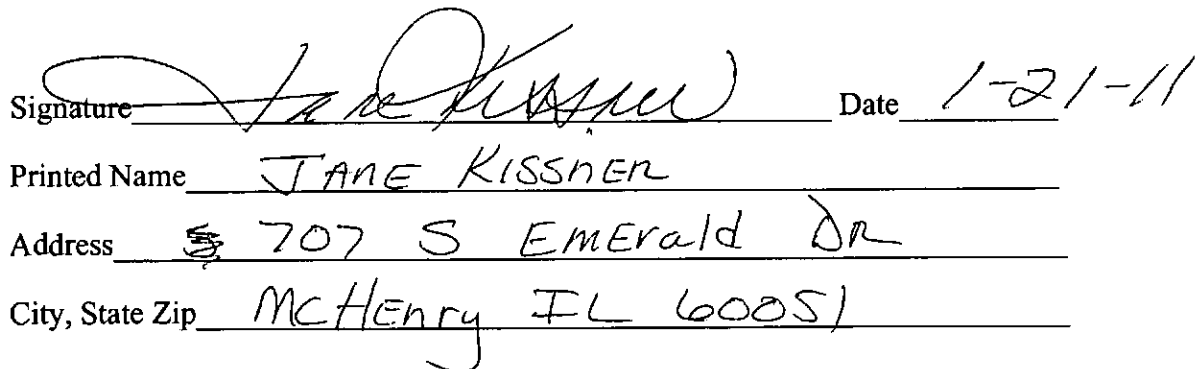 Signature Jane Kissner Date 1-21-11
Printed Name JANE KISSNER
Address 707 S EmErald DR
City, State Zip McHEnry IL 60051